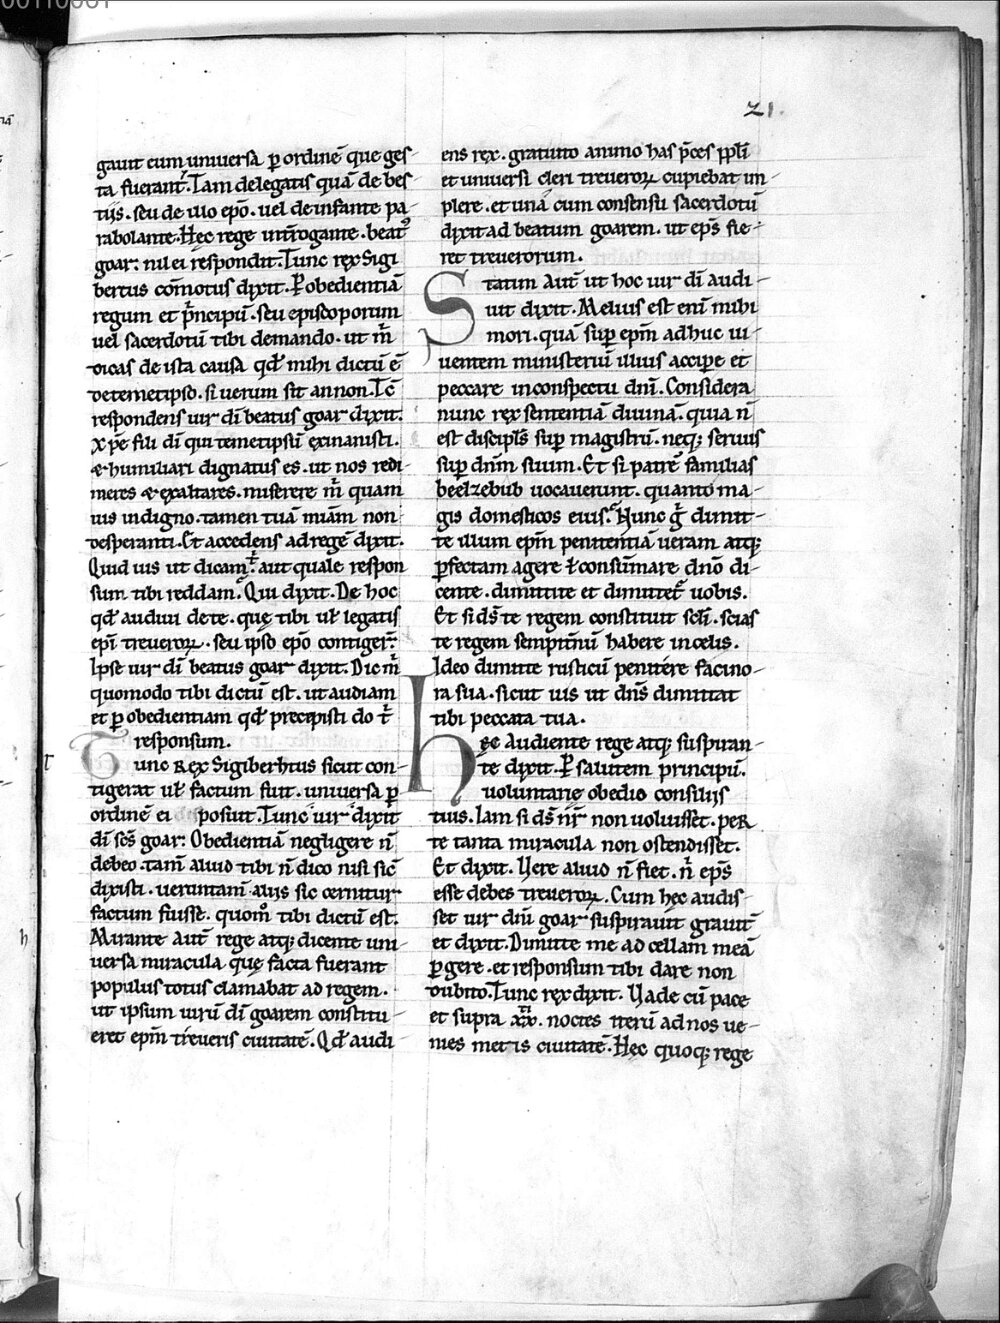 21.
gauit eum uniuersa ꝑ ordinē que ges-
ta fuerant̃. Tam delegatis quā de bes-
tijs. seu de illo ep̄o. uel de infante pa-
rabolante. Hęc rege int̃rogante. beatꝰ
goar. nil ei respondit. Tunc rex Sigi
bertus cōmotus dixit. P obedientiā
regum et p̃ncipū. seu episcoporum
uel sacerdotū tibi demando. ut m̃
dicas de ista causa qđ mihi dictū ē
de temetipso. si uerum sit an non. Tc̄
respondens uir dī beatus goar dixit.
xp̄e fili dī qui temetipsū exinanisti.
& humiliari dignatus es. ut nos redi-
meres & exaltares. miserere m̃ quam
uis indigno. tamen tuā miām non
desperanti. Et accedens ad regē dixit.
Quid uis ut dicam. aut quale respon
sum tibi reddam. Qui dixit. De hoc
qđ audiui de te. quę tibi uł legatis
ep̄i treueroꝝ. seu ipso ep̄o contiger̃.
Ipse uir dī beatus goar dixit. Dic m̃
quomodo tibi dictū est. ut audiam
et ꝑ obedientiam qđ precepisti do t̃
responsum.
Tunc Rex Sigiberhtus sicut con-
tigerat uł factum fuit. uniuersa ꝑ
ordinē ei posuit. Tunc uir dixit
dī scs̄ goar. Obedientiā negligere n̄
debeo. tam̄ aliud tibi n̄ dico nisi sic̄
dixisti. ueruntam̄ alijs sic cernitur
factum fuisse. quom̊ tibi dictū est.
Mirante Aut̄ rege atq; dicente uni-
uersa miracula quę facta fuerant
populus totus clamabat ad regem.
ut ipsum uirū dī goarem constitu-
eret ep̄m treueris ciuitatē. Qđ audi-
ens rex. gratuito animo has p̄ces ppl̄i
et uniuersi cleri treueroꝝ cupiebat im-
plere. et unā cum consensu sacerdotū
dixit ad beatum goarem. ut ep̄s fie-
ret treuerorum.
Statim Aut̄ ut hoc uir dī audi-
uit dixit. Melius est enī mihi
mori. quā suꝑ ep̄m adhuc ui-
uentem ministeriū illius acciꝑe et
peccare in conspectu dn̄i. Considera
nunc rex sententiā diuinā. quia n̄
est discipl̄s suꝑ magistrū. neq; seruus
suꝑ dn̄m suum. Et si patrē familias
beelzebub uocauerunt. quanto ma-
gis domesticos eius. Nunc g̃ dimit-
te illum ep̄m penitentiā ueram atq;
ꝑfectam agere ł consūmare dn̄o di-
cente. dimittite et dimittet̃ uobis.
Et si ds̄ te regem constituit scl̄i. scias
te regem sempit̃nū habere in celis.
Ideo dimitte rusticū penitere facino-
ra sua. sicut uis ut dn̄s dimittat
tibi peccata tua.
Hęc Audiente rege atq; suspiran-
te dixit. P salutem principū.
uoluntarię obedio consilijs
tuis. Iam si ds̄ nr̄ non uoluisset. peR
te tanta miracula non ostendisset.
Et dixit. Vere aliud n̄ fiet. n̄ ep̄s
esse debes treueroꝝ. Cum hęc audis-
set uir dn̄i goar suspirauit grauit̃
et dixit. Dimitte me ad cellam meā
ꝑgere. et responsum tibi dare non
dubito. Tunc rex dixit. Vade cū pace
et supra xx. noctes iterū ad nos ue-
nies mettis ciuitatē. Hęc quoq; rege